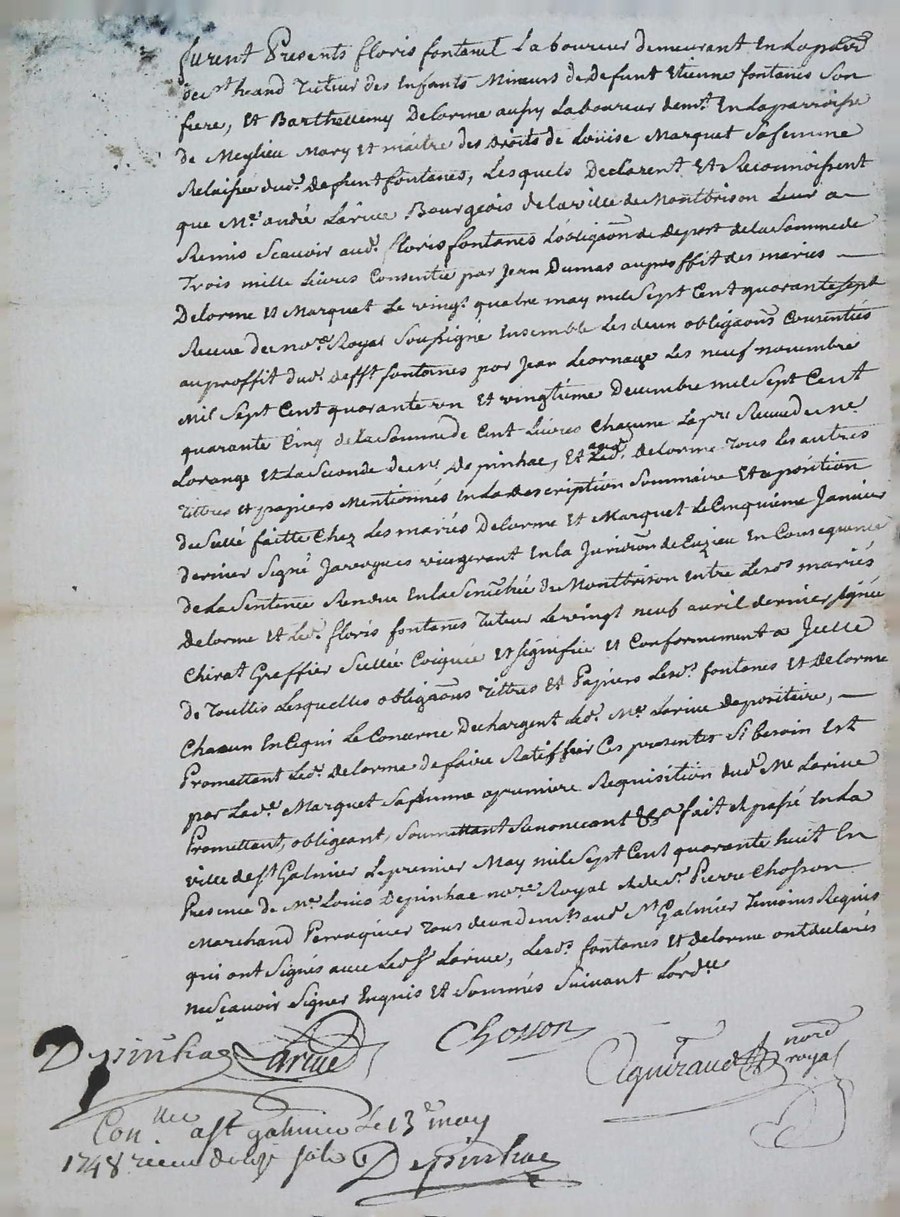 furent Presents floris fontanel Laboureur demeurant En la parr.
de st heand Tuteur des Enfants Mineurs de Defunt Etienne fontanes son
frere, Et Barthelemy Delorme aussy Laboureur demt. En la parroisse
de Meylieu Mary Et maitre des Droits de Louise Marquet sa femme
Relaissée dud. Defunt fontanes, Lesquels Declarent Et Reconnoissent
que Me. andré Larive Bourgeois de la ville de Montbrison Leur a
Remis Scavoir aud. floris fontanes L'obligaon de Deport de la Somme de
Trois mille Livres Consentie par Jean Dumas au proffit des mariés —
Delorme Et Marquet Le vingt quatre may mil Sept Cent quarante sept
Receue de nore. Royal Soussigné Ensemble Les deux obligaons Consenties
au proffit dud. defft fontaines par Jean Leornage Les neuf novembre
Mil Sept Cent quarante un Et vingtième Decembre mil Sept Cent
quarante Cinq de la Somme de Cent Livres Chacune La pre. Receue de Me.
Lorange Et La Seconde de Me. Depinhac, Et aud. Delorme Tous Les autres
tittres Et papiers Mentionnés En La Description Sommaire Et apósition
de Sellé faitte Chez Les mariés Delorme Et Marquet Le Cinquieme Janvier
dernier Signé Javogues vicegerant En la Jurisdon de En Consequence
de La Sentence Rendue En la Senechée de Montbrison Entre Lesd. mariés
Delorme Et Led. floris fontanes Tuteur Le vingt neuf avril dernier signée
Chirat Greffier Sellée Et signifiée Et Conformement a Jcelle
De Touttes Lesquelles obligaons tittres Et Papiers Lesd. fontanes Et Delorme
Chacun En Cequi Le Concerne Dechargent Led. Me. Larive Depositaire, —
Promettant Led. Delorme de faire Ratiffier Ces presentes Si besoin Est
par Lade. Marquet Sa femme a premiere Requisition dud. Me Larive
Promettant, obligeant, Soumettant Renoncant &a fait Et passé En La
ville de st. Galmier Le premier May mil Sept Cent quarante huit En
Presence de Me. Louis Depinhac nore. Royal Et de Sr. Pierre Chosson
Marchand Perruquier Tous deux demts. aud. St Galmier Temoins Requis
qui ont Signés avec Led. Sr Larive, Lesd. fontanes Et Delorme ont declarés
ne Sçavoir Signer Enquis Et Sommés Suivant L'ordce
Depinhac Larive Chosson nore royal
Con.llée a St galmier le 13e may
1748 receu douze sols Depinhac